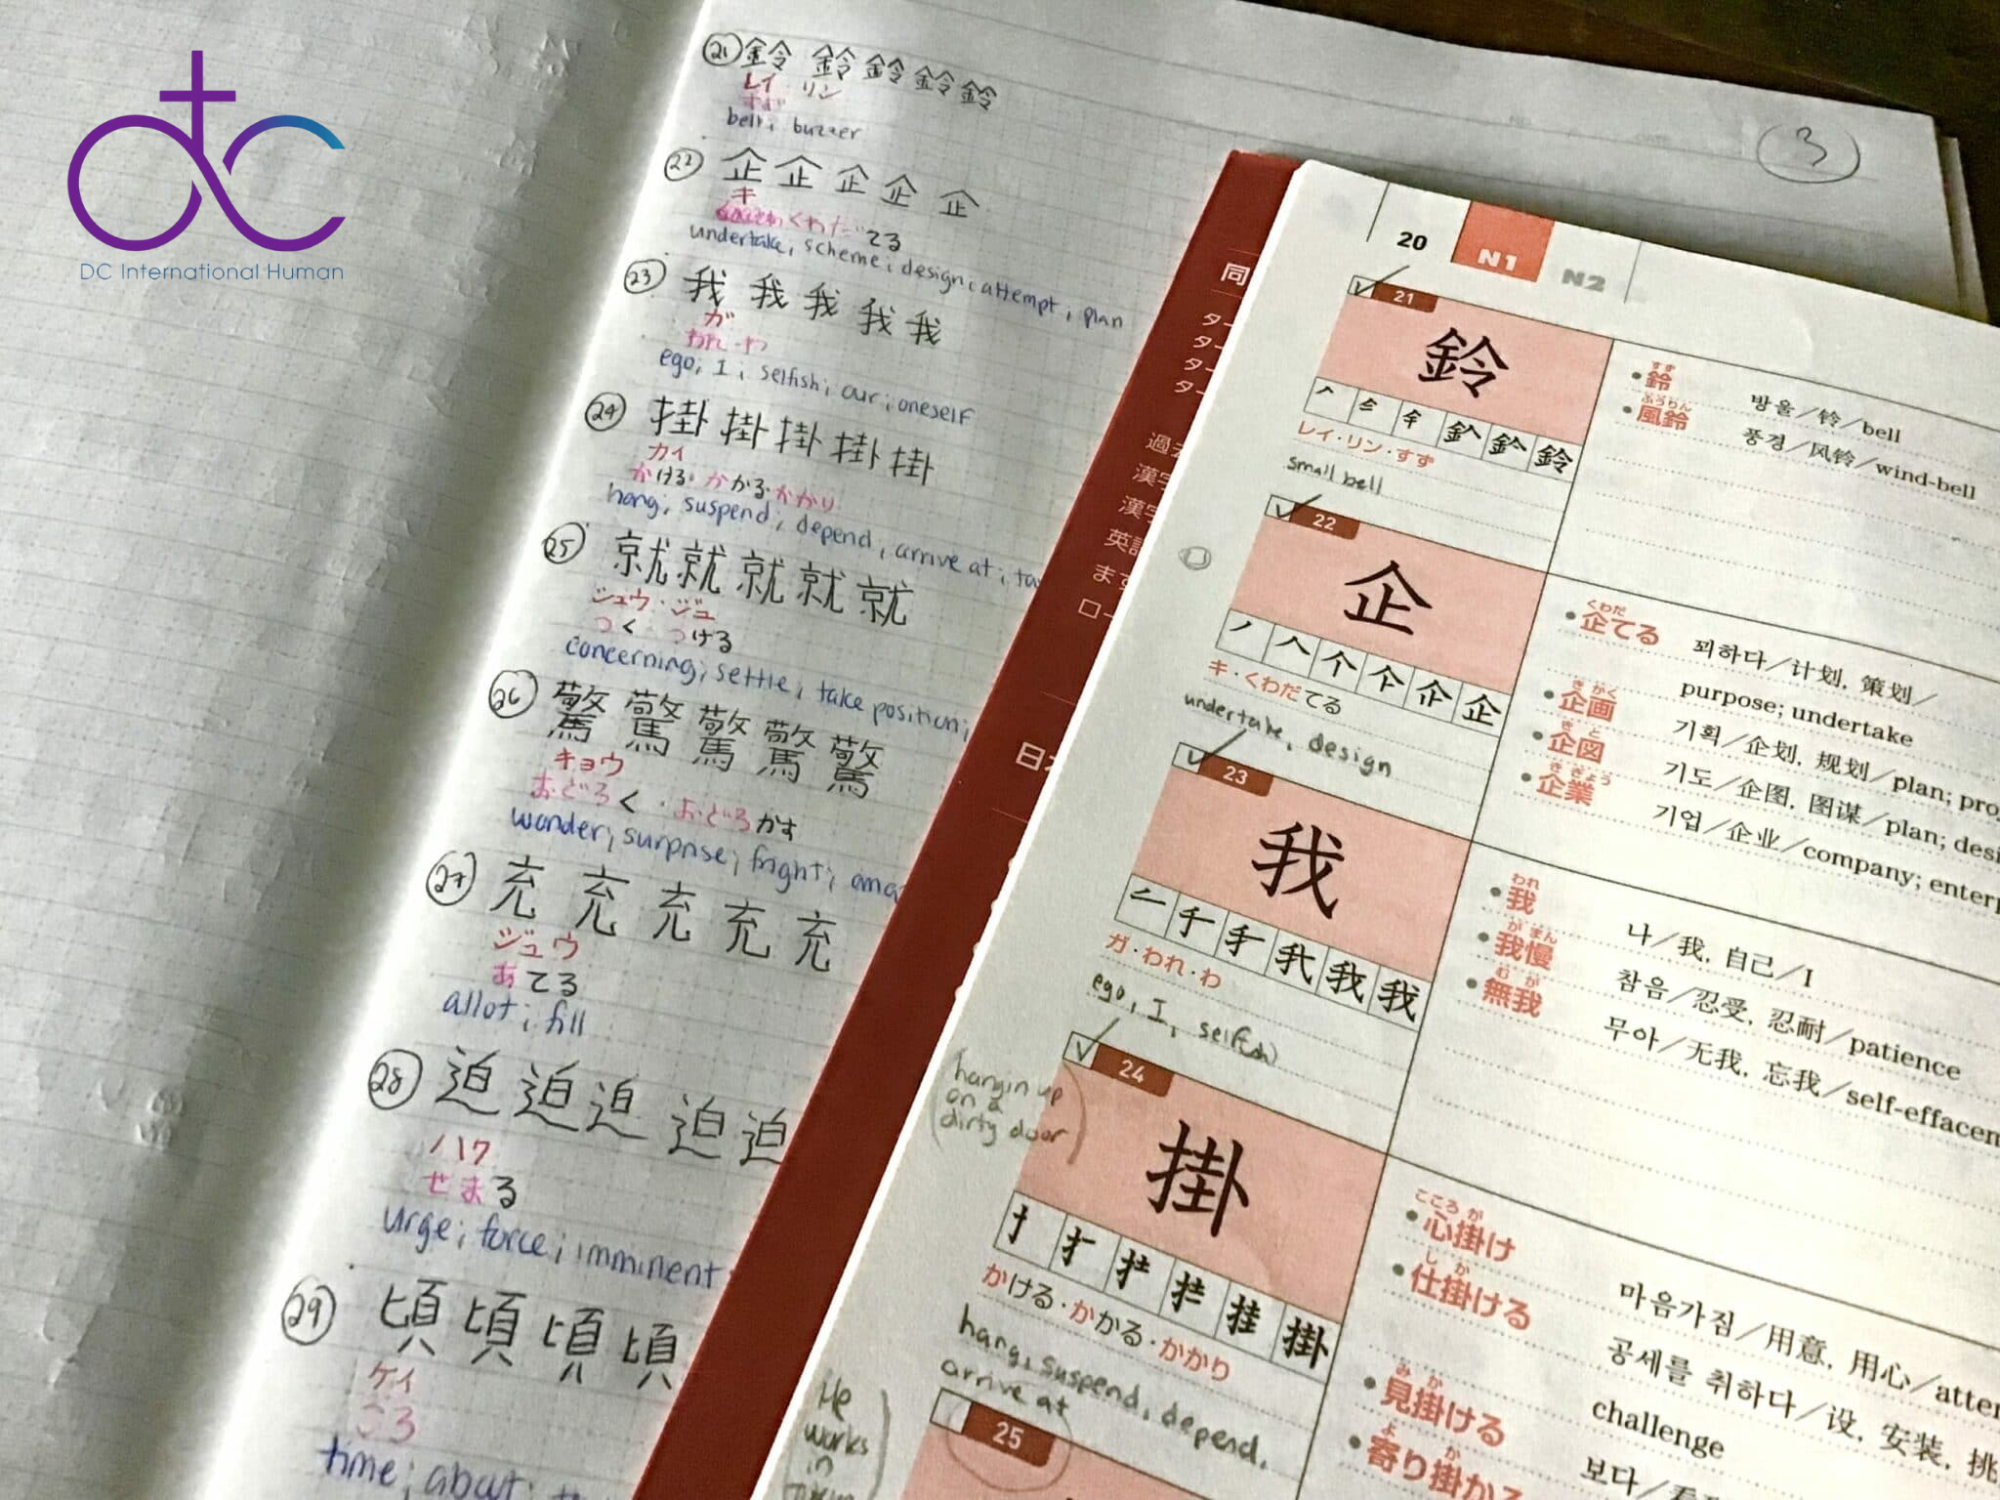 dtc
DC International Human
21 鈴 鈴 鈴 鈴 鈴
レイ リン
すず
bell; buzzer
22 企 企 企 企 企
キ
くわだてる
undertake, scheme; design; attempt; plan
23 我 我 我 我 我
ガ
われ・わ
ego, I, selfish; our; oneself
24 掛 掛 掛 掛 掛
カイ
かける・かかる・かかり
hang; suspend; depend, arrive at;
25 就 就 就 就 就
シュウ・ジュ
つく つける
concerning; settle; take position;
26 驚 驚 驚 驚 驚
キョウ
おどろく・おどろかす
wonder; surprise; fright;
27 充 充 充 充 充
ジュウ
あてる
allot; fill
28 迫 迫 迫 迫 迫
ハク
せまる
urge; force; imminent
29 頃 頃 頃 頃
ケイ
ころ
time; about;
3
同
ター
ター
ター
ター
漢字
漢字
英語
ます
20 N1 N2
21
鈴
レイ・リン・すず
small bell
すず
鈴 방울／铃／bell
ふうりん
風鈴 풍경／风铃／wind-bell
22
企
キ・くわだてる
undertake, design
くわだ
企てる 꾀하다／计划, 策划／
purpose; undertake
きかく
企画 기획／企划, 规划／plan;
きと
企図 기도／企图, 图谋／plan;
きぎょう
企業 기업／企业／company;
23
我
ガ・われ・わ
ego, I, self(ish)
われ
我 나／我, 自己／I
がまん
我慢 참음／忍受, 忍耐／patience
むが
無我 무아／无我, 忘我／
24
hangin up
on a
dirty door
掛
かける・かかる・かかり
hang, suspend, depend,
arrive at
こころが
心掛け 마음가짐／用意, 用心／
しか
仕掛ける 공세를 취하다／设, 安装,
challenge
みか
見掛ける 보다／
よ か
寄り掛か
25
He
works
in